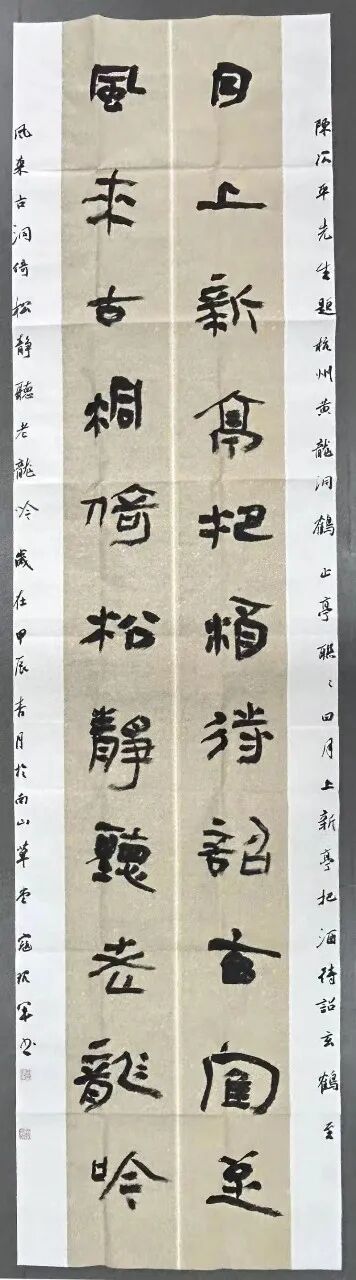 陳公平先生題杭州黄龍洞鶴止亭聯〻曰月上新亭把酒待詔玄鶴至
月上新亭把酒待詔玄鶴至
風來古桐倚松靜聽老龍吟
風来古洞倚松静聽老龍吟歲在甲辰杏月於南山草堂寇